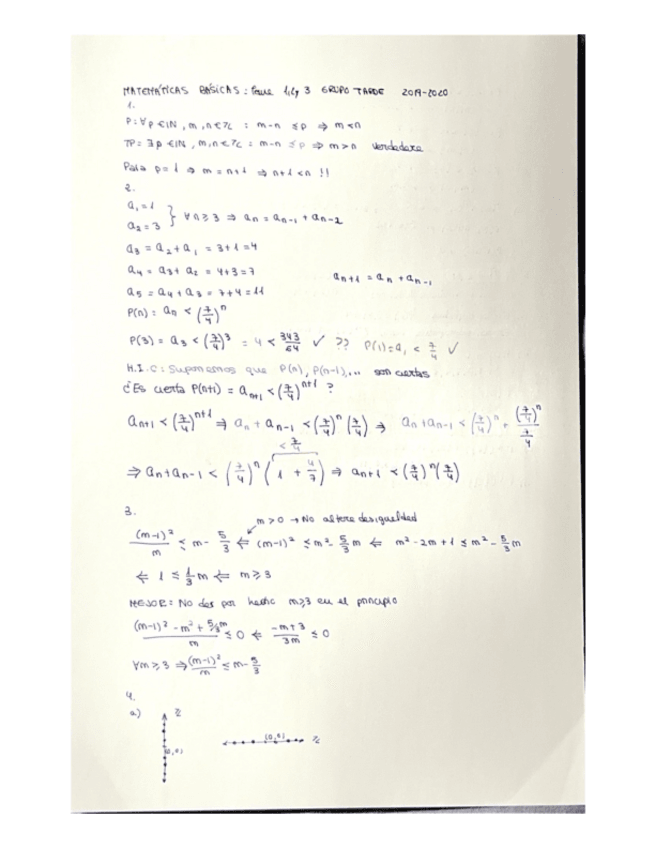 MATEMÁTICAS BÁSICAS: 1, 2 y 3 GRUPO TARDE 2019-2020
1.
P: ∀p ∈ IN, m, n ∈ ℤ : m-n ≤ p ⇒ m<n
TP = ∃p ∈ IN, m, n ∈ ℤ : m-n ≤ p ⇒ m>n verdadera
Para p=1 ⇒ m=n+1 ⇒ n+1<n !!
2.
a₁=1
a₂=3 } ∀n≥3 ⇒ aₙ = aₙ₋₁ + aₙ₋₂
a₃ = a₂+a₁ = 3+1=4
a₄ = a₃+a₂ = 4+3=7 aₙ₊₁ = aₙ + aₙ₋₁
a₅ = a₄+a₃ = 7+4=11
P(n) = aₙ < (7/4)ⁿ
P(3) = a₃ < (7/4)³ = 4 < 343/64 ✓ ?? P(1)=a₁ < 7/4 ✓
H.I.C: Suponemos que P(n), P(n-1),... son ciertas
¿Es cierta P(n+1) = aₙ₊₁ < (7/4)ⁿ⁺¹ ?
aₙ₊₁ < (7/4)ⁿ⁺¹ ⇒ aₙ + aₙ₋₁ < (7/4)ⁿ (7/4) ⇒ aₙ + aₙ₋₁ < (7/4)ⁿ + (7/4)ⁿ / (7/4)
< 7/4
⇒ aₙ + aₙ₋₁ < (7/4)ⁿ (1 + 4/7) ⇒ aₙ₊₁ < (7/4)ⁿ (7/4)
3.
m>0 → No altera desigualdad
(m-1)²/m ≤ m - 5/3 ⇐ (m-1)² ≤ m² - 5/3 m ⇐ m² - 2m + 1 ≤ m² - 5/3 m
⇐ 1 ≤ 1/3 m ⇐ m ≥ 3
MEJOR: No des por hecho m≥3 en el principio
((m-1)² - m² + 5/3 m)/m ≤ 0 ⇐ (-m+3)/3m ≤ 0
∀m ≥ 3 ⇒ (m-1)²/m ≤ m - 5/3
4.
a) ℤ (0,0) (0,0) ℤ